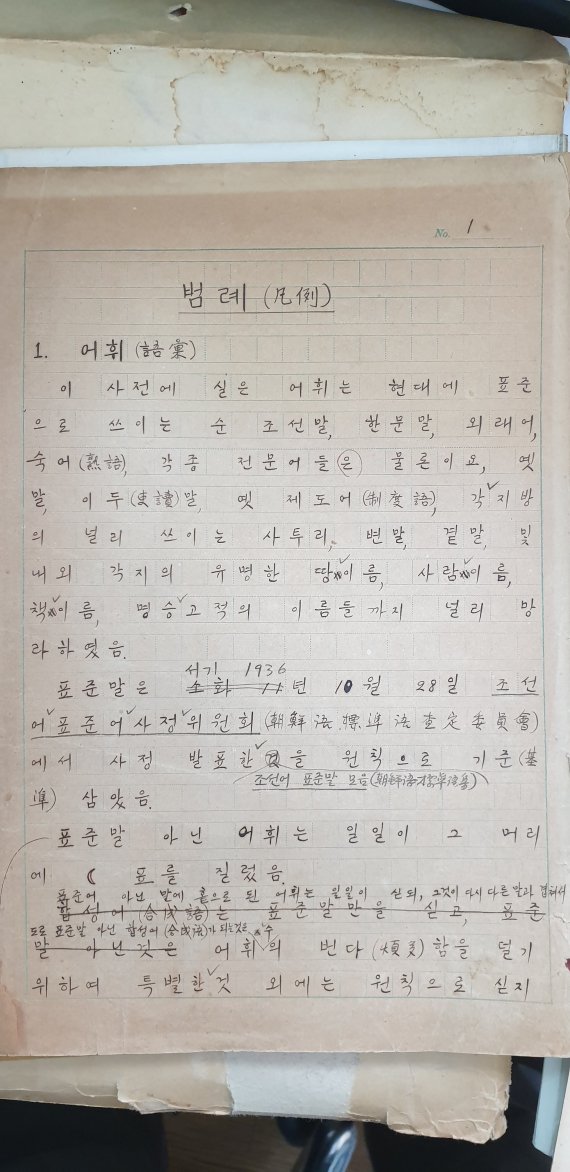 No. 1
범례 (凡例)
1. 어휘 (語彙)
이 사전에 실은 어휘는 현대에 표준
으로 쓰이는 순 조선말, 한문말, 외래어,
숙어 (熟語), 각종 전문어들은 물론이요, 옛
말, 이두 (吏讀) 말, 옛 제도어 (制度語), 각 지방
의 널리 쓰이는 사투리, 변말, 곁말, 및
내외 각지의 유명한 땅이름, 사람이름,
책이름, 명승 고적의 이름들까지 널리 망
라하였음.
서기 1936
표준말은 소화 11년 10월 28일 조선
어 표준어 사정 위원회 (朝鮮語 標準語 査定 委員會)
에서 사정 발표한 을 원칙으로 기준 (基
조선어 표준말 모음
準) 삼았음.
표준말 아닌 어휘는 일일이 그 머리
에 ( 표를 질렀음.
표준어 아닌 말에 홑으로 된 어휘는 일일이 싣되, 그것이 다시 다른 말과 합쳐서
합성어 (合成語)는 표준말만을 싣고, 표준
도로 표준말 아닌 합성어 (合成語)가 되는것은
말 아닌것은 어휘의 번다 (煩多) 함을 덜기
위하여 특별한 것 외에는 원칙으로 싣지